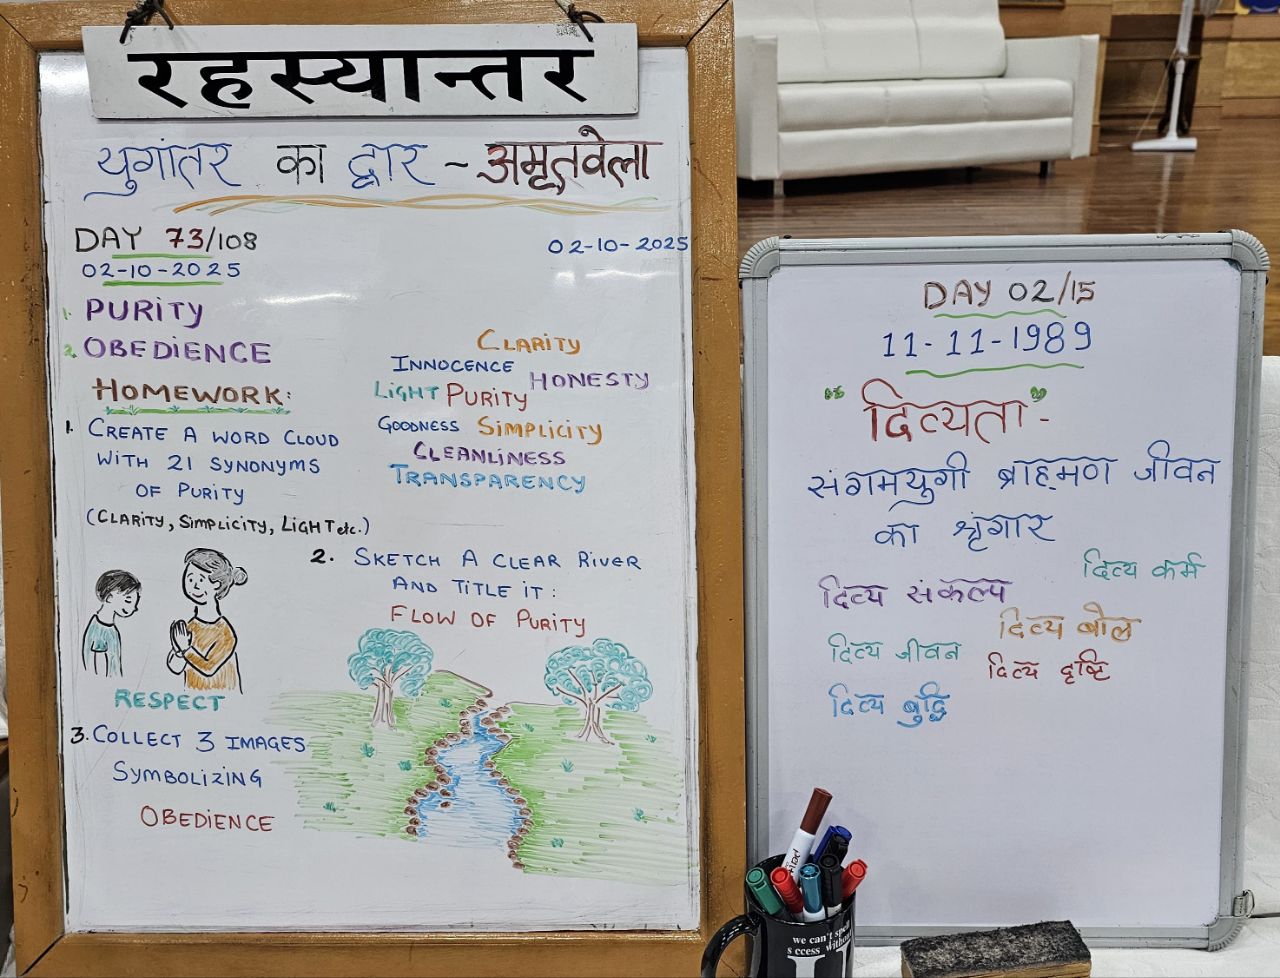 रहस्यान्तर
युगांतर का द्वार ~ अमृतवेला
DAY 73/108
02-10-2025
02-10-2025
1. PURITY
2. OBEDIENCE
HOMEWORK:
1. CREATE A WORD CLOUD
WITH 21 SYNONYMS
OF PURITY
(CLARITY, SIMPLICITY, LIGHT etc.)
CLARITY
INNOCENCE
HONESTY
LIGHT PURITY
GOODNESS SIMPLICITY
CLEANLINESS
TRANSPARENCY
2. SKETCH A CLEAR RIVER
AND TITLE IT:
FLOW OF PURITY
RESPECT
3. COLLECT 3 IMAGES
SYMBOLIZING
OBEDIENCE
DAY 02/15
11-11-1989
दिव्यता -
संगमयुगी ब्राह्मण जीवन
का श्रृंगार
दिव्य कर्म
दिव्य संकल्प
दिव्य बोल
दिव्य जीवन
दिव्य दृष्टि
दिव्य बुद्धि
we can't spell
s ccess without